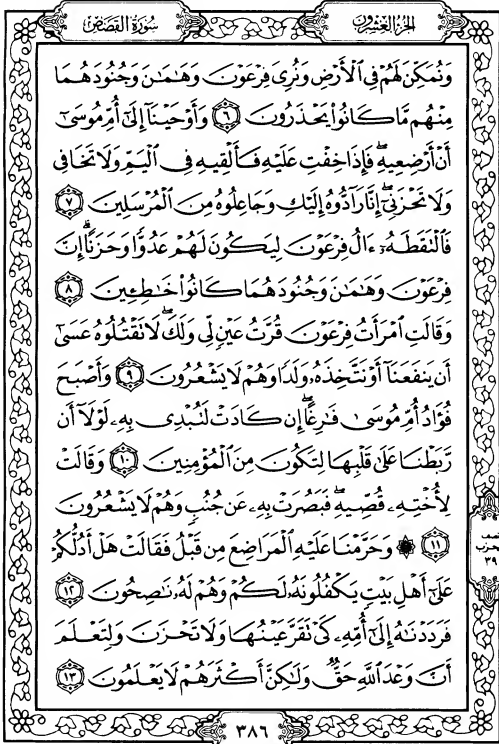 الجزء العشرون
سورة القصص
وَنُمَكِّنَ لَهُمْ فِى ٱلْأَرْضِ وَنُرِىَ فِرْعَوْنَ وَهَٰمَٰنَ وَجُنُودَهُمَا
مِنْهُم مَّا كَانُوا۟ يَحْذَرُونَ ٦ وَأَوْحَيْنَآ إِلَىٰٓ أُمِّ مُوسَىٰٓ
أَنْ أَرْضِعِيهِ ۖ فَإِذَا خِفْتِ عَلَيْهِ فَأَلْقِيهِ فِى ٱلْيَمِّ وَلَا تَخَافِى
وَلَا تَحْزَنِىٓ ۖ إِنَّا رَآدُّوهُ إِلَيْكِ وَجَاعِلُوهُ مِنَ ٱلْمُرْسَلِينَ ٧
فَٱلْتَقَطَهُۥٓ ءَالُ فِرْعَوْنَ لِيَكُونَ لَهُمْ عَدُوًّا وَحَزَنًا ۗ إِنَّ
فِرْعَوْنَ وَهَٰمَٰنَ وَجُنُودَهُمَا كَانُوا۟ خَٰطِـِٔينَ ٨
وَقَالَتِ ٱمْرَأَتُ فِرْعَوْنَ قُرَّتُ عَيْنٍ لِّى وَلَكَ ۖ لَا تَقْتُلُوهُ عَسَىٰٓ
أَن يَنفَعَنَآ أَوْ نَتَّخِذَهُۥ وَلَدًا وَهُمْ لَا يَشْعُرُونَ ٩ وَأَصْبَحَ
فُؤَادُ أُمِّ مُوسَىٰ فَٰرِغًا ۖ إِن كَادَتْ لَتُبْدِى بِهِۦ لَوْلَآ أَن
رَّبَطْنَا عَلَىٰ قَلْبِهَا لِتَكُونَ مِنَ ٱلْمُؤْمِنِينَ ١٠ وَقَالَتْ
لِأُخْتِهِۦ قُصِّيهِ ۖ فَبَصُرَتْ بِهِۦ عَن جُنُبٍ وَهُمْ لَا يَشْعُرُونَ
١١ ۞ وَحَرَّمْنَا عَلَيْهِ ٱلْمَرَاضِعَ مِن قَبْلُ فَقَالَتْ هَلْ أَدُلُّكُمْ
عَلَىٰٓ أَهْلِ بَيْتٍ يَكْفُلُونَهُۥ لَكُمْ وَهُمْ لَهُۥ نَٰصِحُونَ ١٢
فَرَدَدْنَٰهُ إِلَىٰٓ أُمِّهِۦ كَىْ تَقَرَّ عَيْنُهَا وَلَا تَحْزَنَ وَلِتَعْلَمَ
أَنَّ وَعْدَ ٱللَّهِ حَقٌّ وَلَٰكِنَّ أَكْثَرَهُمْ لَا يَعْلَمُونَ ١٣
٣٩
٣٨٦